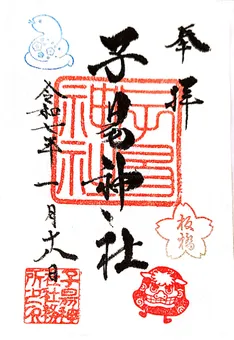 奉拝
板橋
子易神社
子易神社
令和七年一月十八日
子易神
社社務
所之印